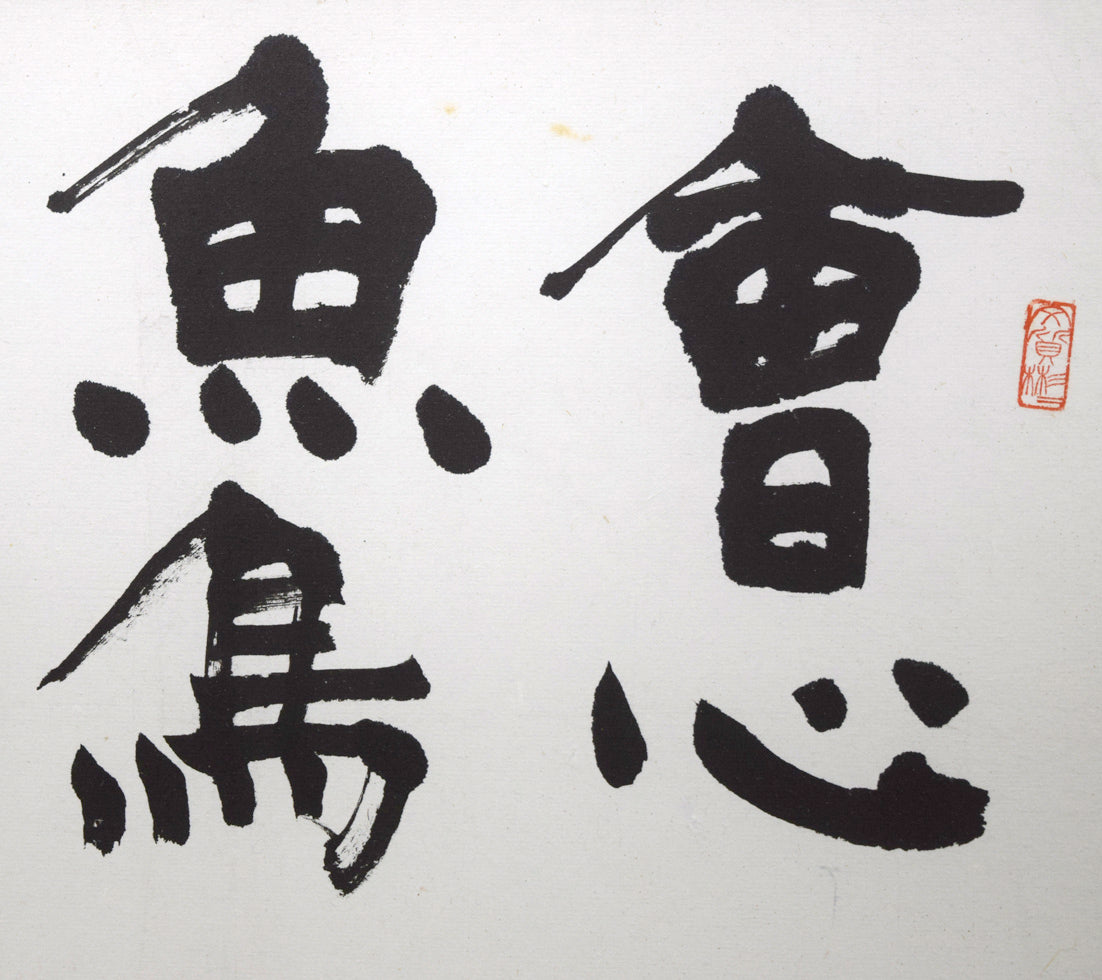 會心
魚鳥